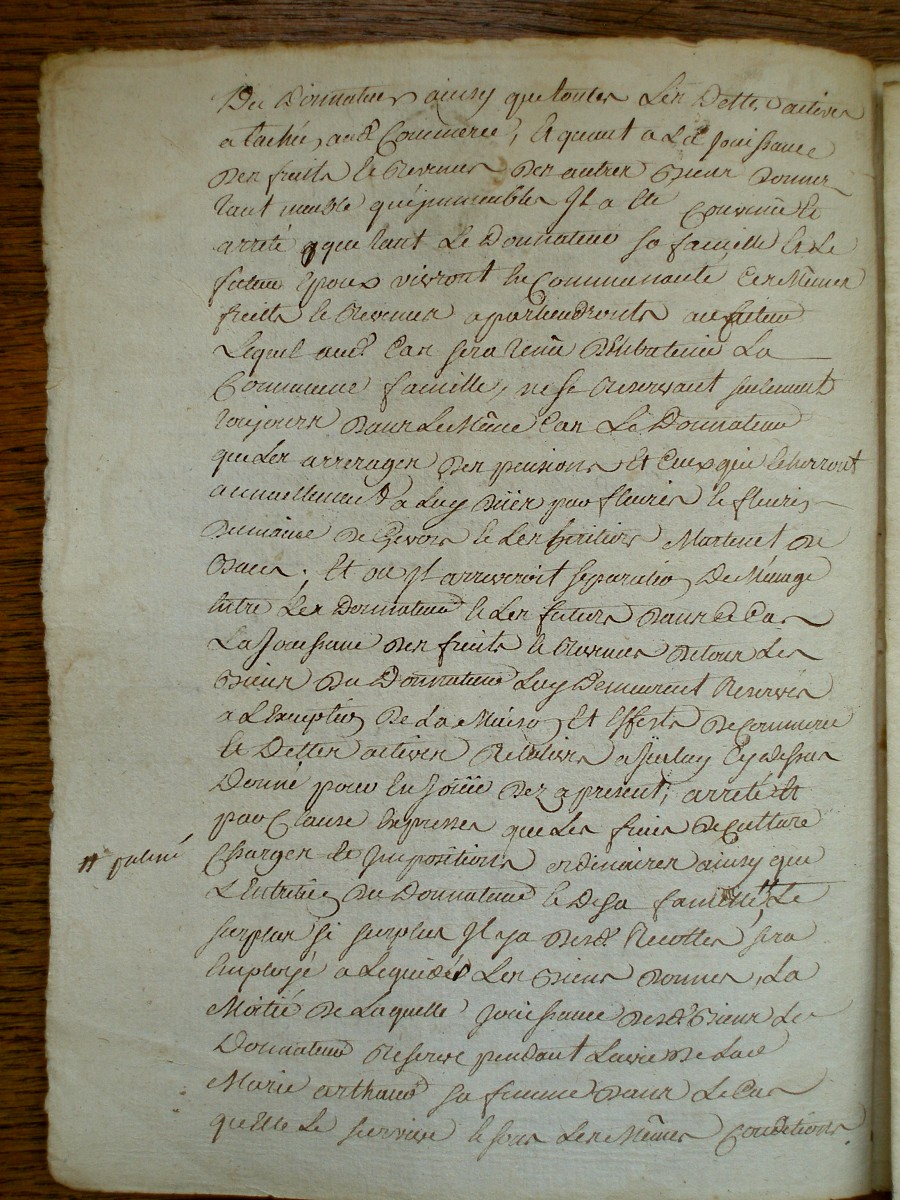 Du Donnateur ainsy que toutes Les Dettes actives
atachés aud. Commerce, Et quant a La d. Jouissance
des fruits Et Revenus des autres Biens Donnés
tant meuble qu'jmmeubles Jl a Eté Convenu Et
arrêté que tant Le Donnateur sa famille Et Le
futur Epoux vivront En Communauté, Ces Mêmes
fruits Et Revenus apartiendronts au futur
Lequel aud. Cas sera tenu D'Entretenir La
Commune famille, ne se Reservant seulement
toujours Dans Le Même Cas Le Donnateur
que Les arrerages des pensions Et Ceux qui Echerront
annuellement a Luy Dües par fleurie Et fleurie
Dumaine de Et Les heritiers Martinet de
; Et ou Jl arriveroit separation De Ménage
Entre Les Donnateur Et Les futurs Dans Ce Cas
La Jouissance des fruits Et Revenus de tous Les
Biens Du Donnateur Luy Demeurent Reservés
a L'Exception De La Maison Et Effets De Commerce
Et Dettes actives Relatives a jceluy Cy dessus
Donné pour En Joüir Dez a present; arrêté Et
par Clause Expresse que Les frais De Culture
Charges Et Jmpositions ordinaires ainsy que
# prelevé
L'Entretien du Donnateur Et De sa famille # Le
surplus si surplus Jl y a Desd. Recoltes sera
Employé a Lequider Les Biens Donnés, La
Moitié De Laquelle Jouissance Desd. Biens Le
Donnateur Reserve pendant La vie De Lad.
Marie arthaud sa femme Dans Le Cas
qu'elle Le survive Et sous Les Mêmes Conditions